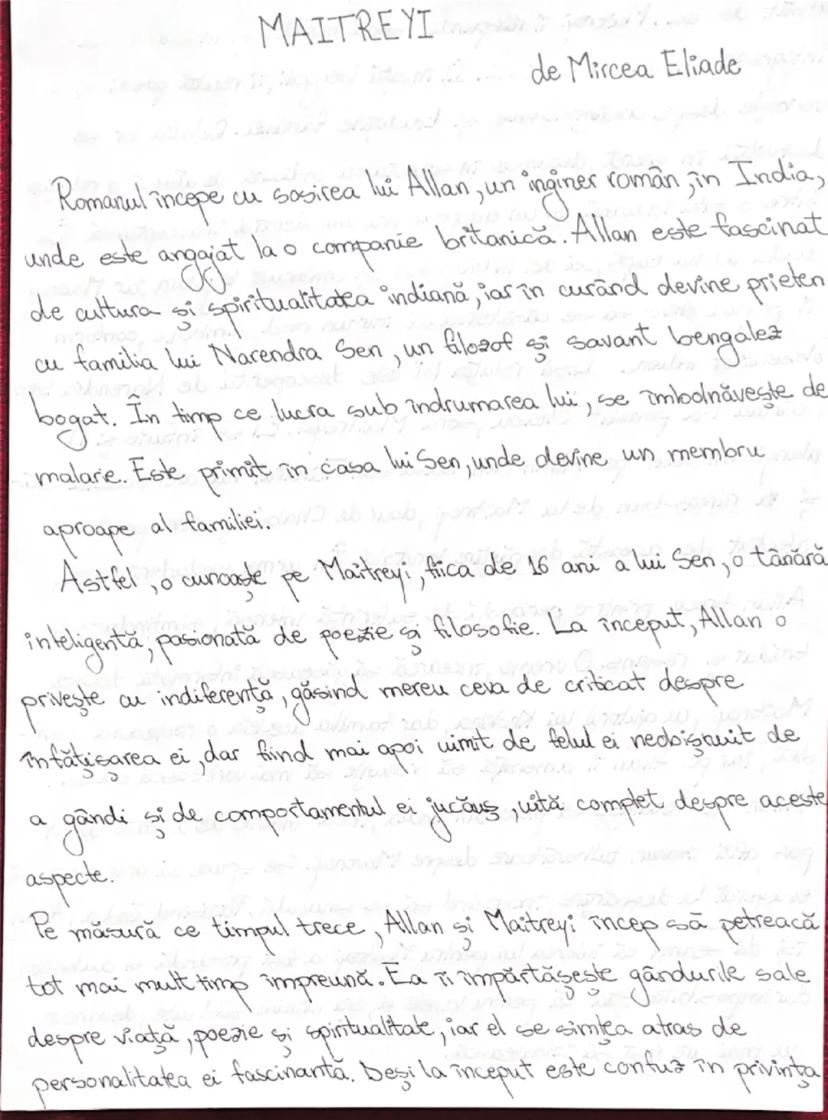 MAITREYI
de Mircea Eliade
Romanul începe cu sosirea lui Allan, un inginer român, în India,
unde este angajat la o companie britanică. Allan este fascinat
de cultura și spiritualitatea indiană, iar în curând devine prieten
cu familia lui Narendra Sen, un filozof și savant bengalez
bogat. În timp ce lucra sub îndrumarea lui, se îmbolnăvește de
malarie. Este primit în casa lui Sen, unde devine un membru
aproape al familiei.
Astfel, o cunoaște pe Maitreyi, fiica de 16 ani a lui Sen, o tânără
inteligentă, pasionată de poezie și filosofie. La început, Allan o
privește cu indiferență, găsind mereu ceva de criticat despre
înfățișarea ei, dar fiind mai apoi uimit de felul ei neobișnuit de
a gândi și de comportamentul ei jucăuș, uită complet despre aceste
aspecte.
Pe măsură ce timpul trece, Allan și Maitreyi încep să petreacă
tot mai mult timp împreună. Ea îi împărtășește gândurile sale
despre viață, poezie și spiritualitate, iar el se simțea atras de
personalitatea ei fascinantă. Deși la început este confuz în privința